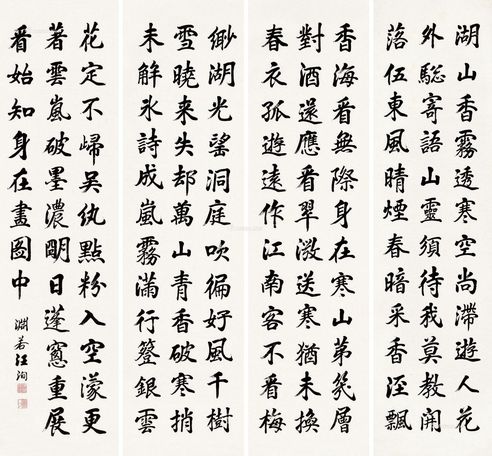 湖山香霧透寒空尚滯遊人花
外驄寄語山靈須待我莫教開
落伍東風晴煙春暗采香涇飄
香海看無際身在寒山苐幾層
對酒還應看翠微送寒猶未換
春衣孤遊遠作江南客不看梅
緲湖光望洞庭吹徧好風千樹
雪曉来失却萬山青香破寒捎
未解氷詩成嵐霧滿行簦銀雲
花定不歸吳紈點粉入空濛更
著雲嵐破墨濃明日蓬窗重展
看始知身在畫圖中
淵若汪洵